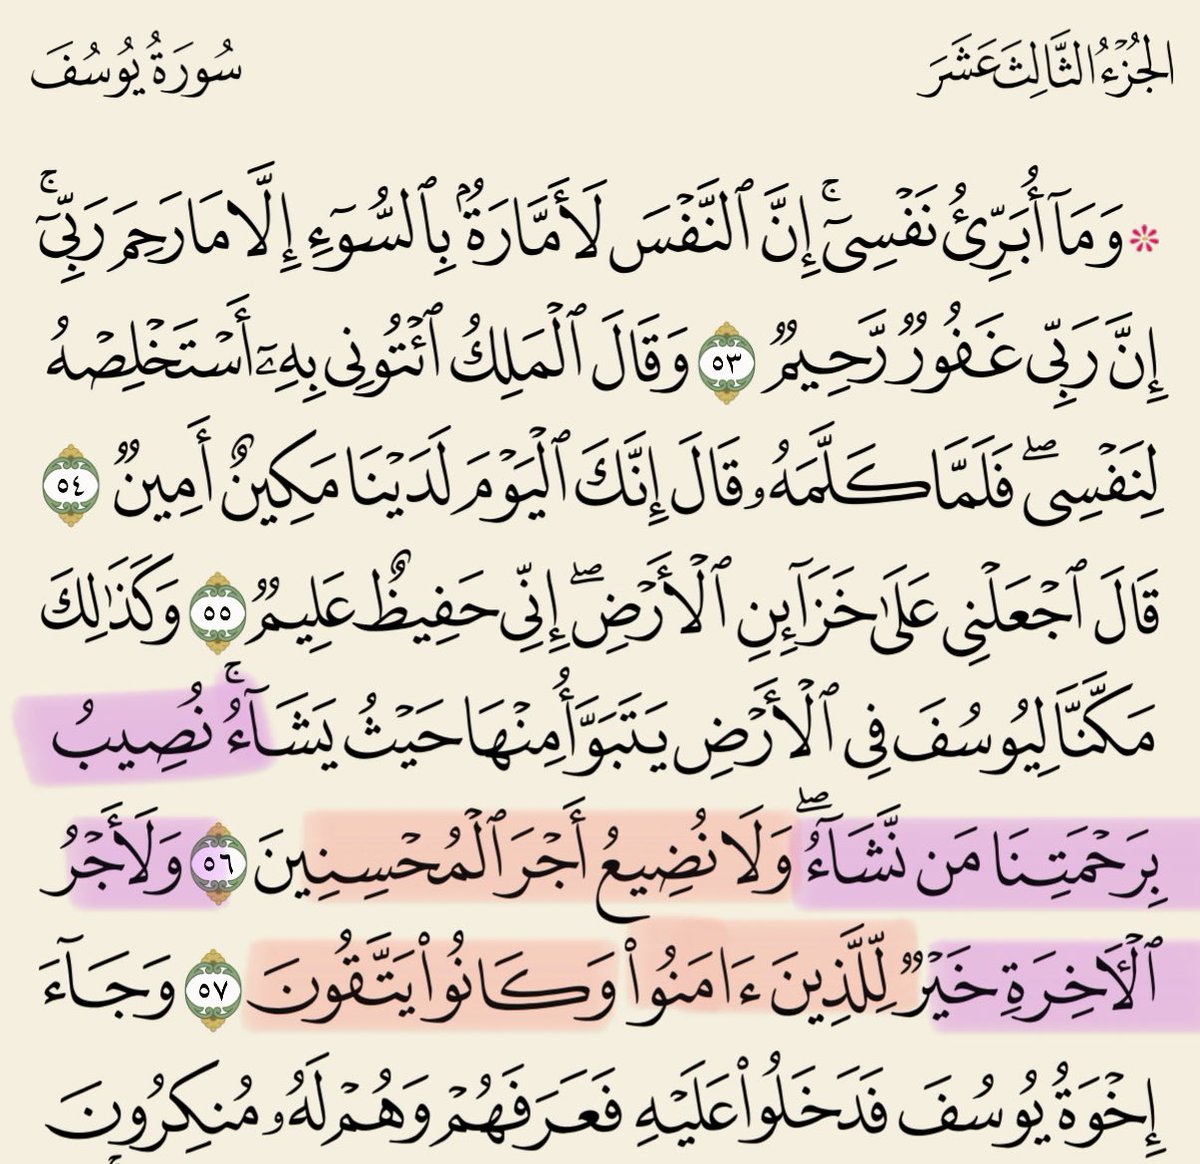 الجُزْءُ الثَّالِثَ عَشَرَ
سُورَةُ يُوسُفَ
۞ وَمَآ أُبَرِّئُ نَفۡسِيٓۚ إِنَّ ٱلنَّفۡسَ لَأَمَّارَةُۢ بِٱلسُّوٓءِ إِلَّا مَا رَحِمَ رَبِّيٓۚ
إِنَّ رَبِّي غَفُورٞ رَّحِيمٞ ٥٣ وَقَالَ ٱلۡمَلِكُ ٱئۡتُونِي بِهِۦٓ أَسۡتَخۡلِصۡهُ
لِنَفۡسِيۖ فَلَمَّا كَلَّمَهُۥ قَالَ إِنَّكَ ٱلۡيَوۡمَ لَدَيۡنَا مَكِينٌ أَمِينٞ ٥٤
قَالَ ٱجۡعَلۡنِي عَلَىٰ خَزَآئِنِ ٱلۡأَرۡضِۖ إِنِّي حَفِيظٌ عَلِيمٞ ٥٥ وَكَذَٰلِكَ
مَكَّنَّا لِيُوسُفَ فِي ٱلۡأَرۡضِ يَتَبَوَّأُ مِنۡهَا حَيۡثُ يَشَآءُۚ نُصِيبُ
بِرَحۡمَتِنَا مَن نَّشَآءُۖ وَلَا نُضِيعُ أَجۡرَ ٱلۡمُحۡسِنِينَ ٥٦ وَلَأَجۡرُ
ٱلۡأٓخِرَةِ خَيۡرٞ لِّلَّذِينَ ءَامَنُواْ وَكَانُواْ يَتَّقُونَ ٥٧ وَجَآءَ
إِخۡوَةُ يُوسُفَ فَدَخَلُواْ عَلَيۡهِ فَعَرَفَهُمۡ وَهُمۡ لَهُۥ مُنكِرُونَ